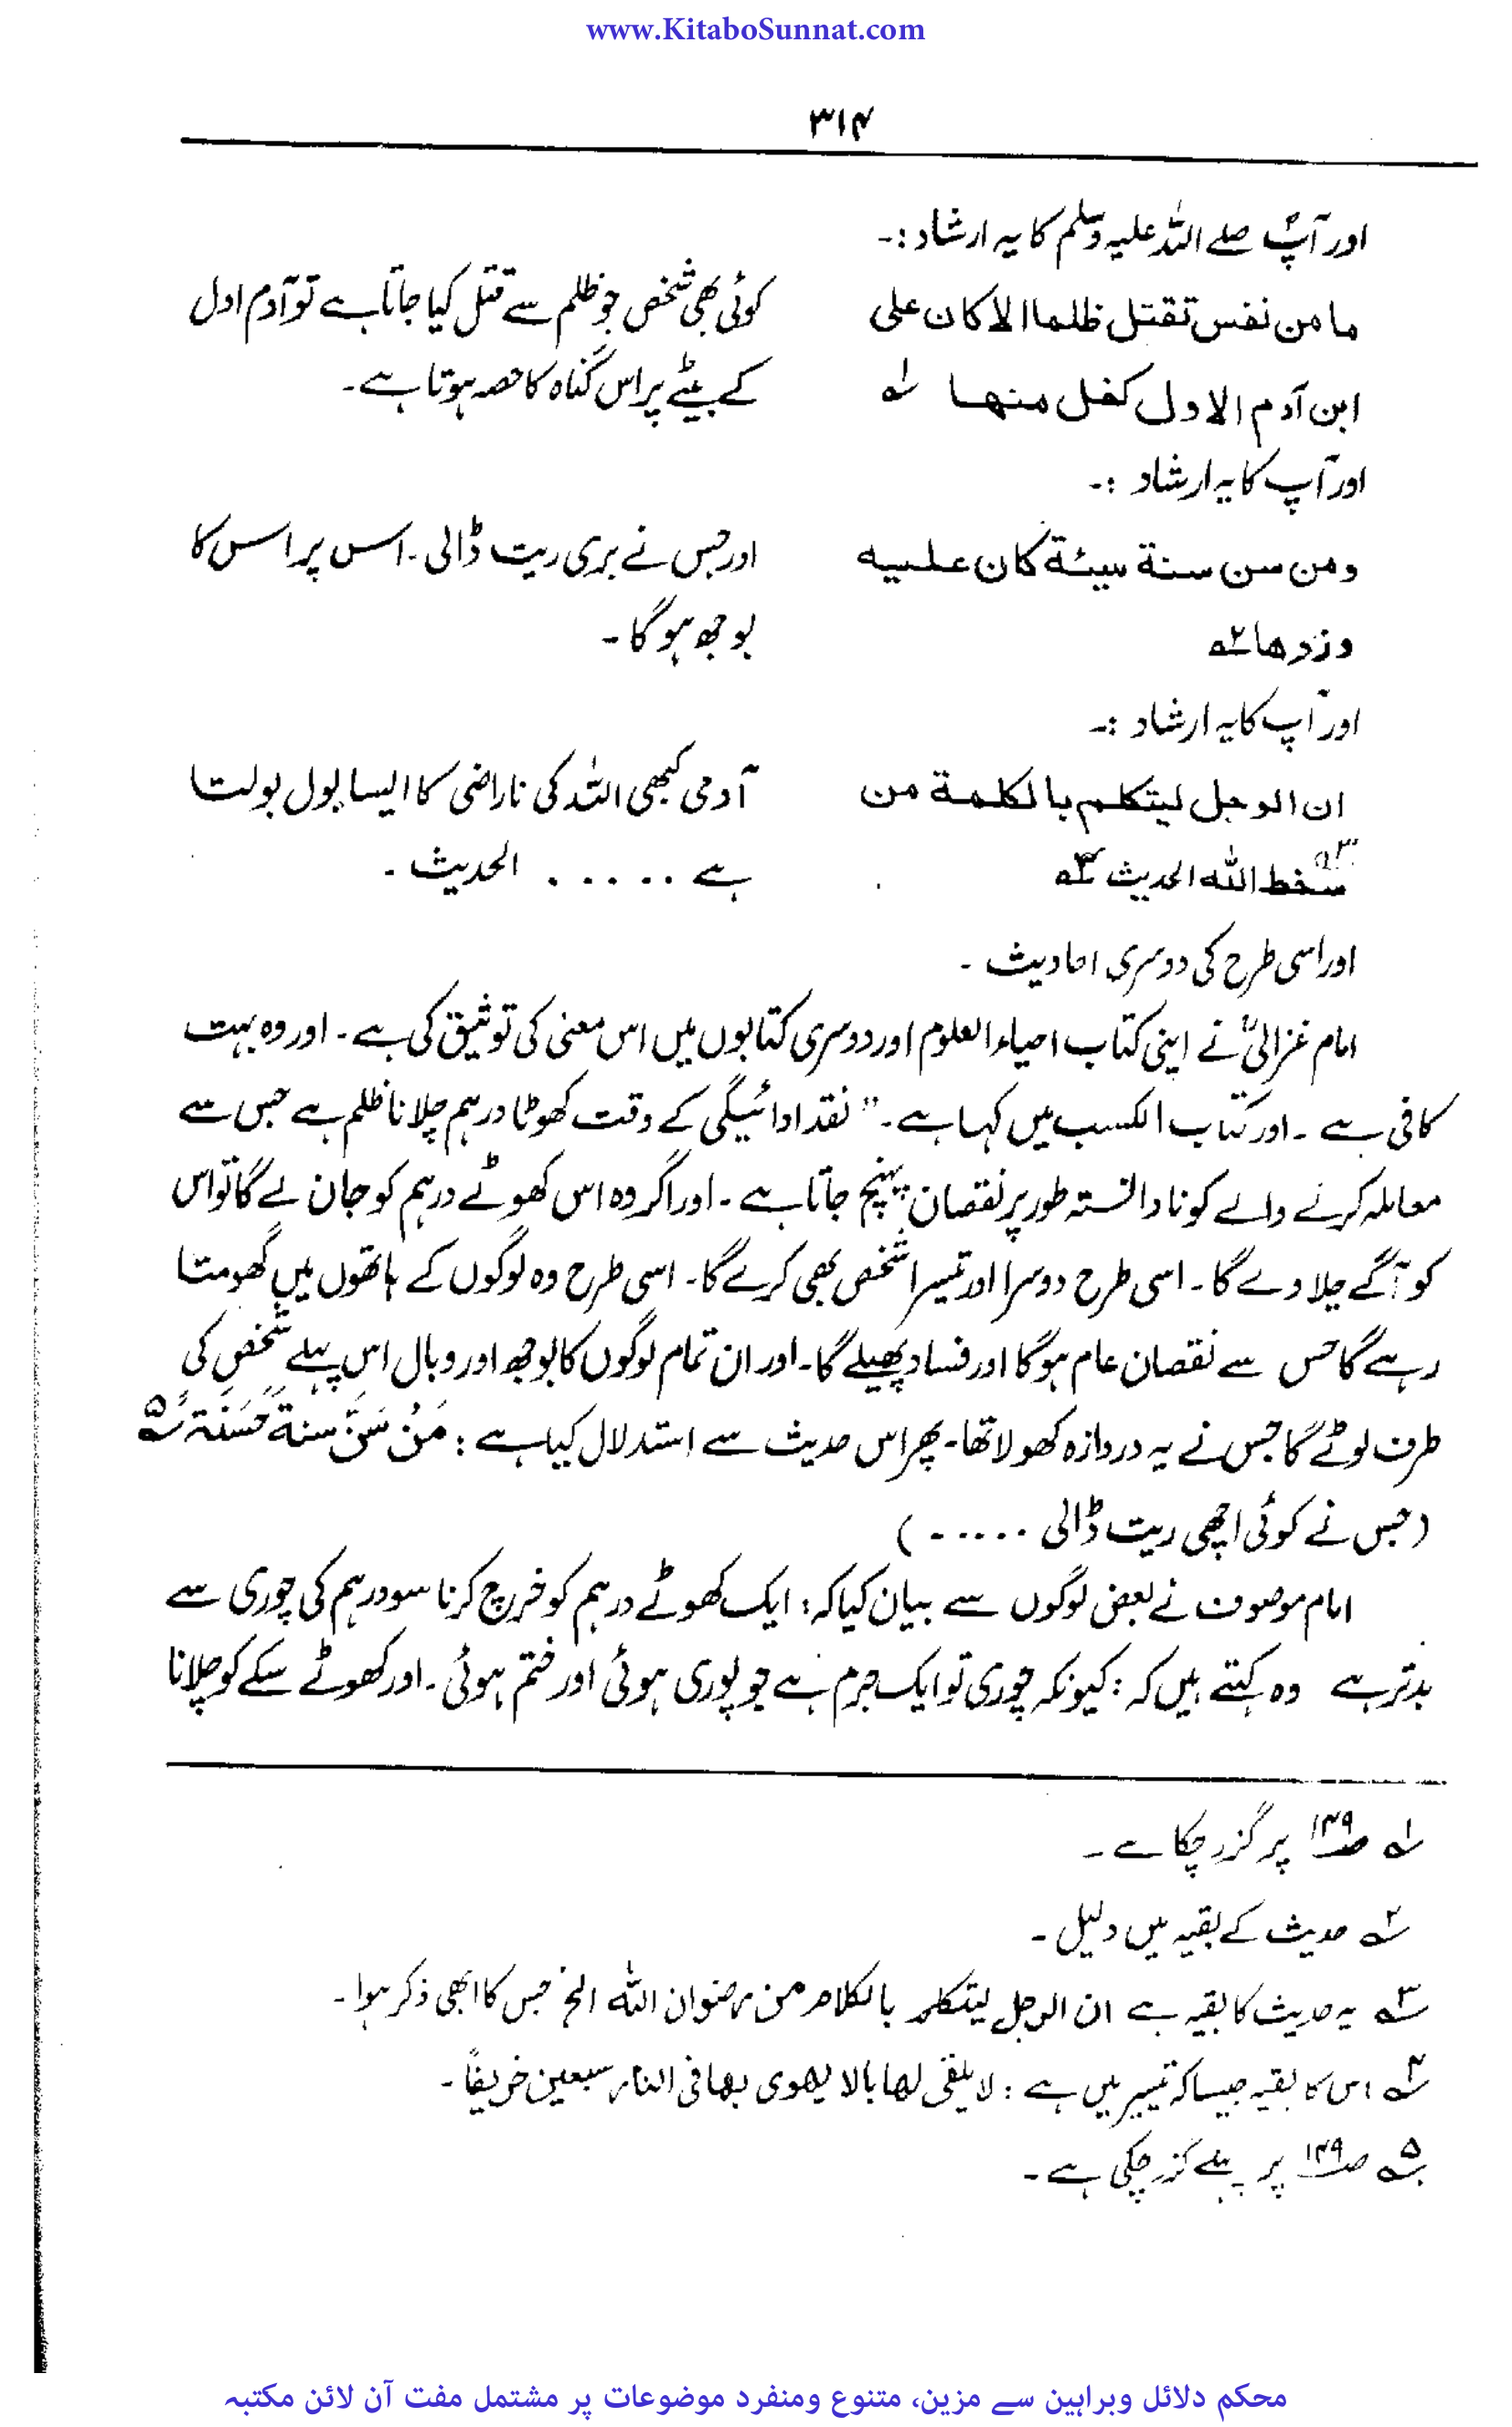 www.KitaboSunnat.com
۳۱۴
اور آپؐ صلے اللہ علیہ وسلم کا یہ ارشاد :۔
ما من نفس تقتل ظلما الا کان علی
ابن آدم الاول کفل منھا ؎۱
کوئی بھی شخص جو ظلم سے قتل کیا جاتا ہے تو آدم اول
کے بیٹے پر اس گناہ کا حصہ ہوتا ہے۔
اور آپ کا یہ ارشاد :۔
ومن سن سنۃ سیئۃ کان علیہ
وزرھا ؎۲
اور جس نے بری ریت ڈالی ۔ اس پر اس کا
بوجھ ہوگا ۔
اور آپ کا یہ ارشاد :۔
ان الرجل لیتکلم بالکلمۃ من ؎۳
سخط اللہ الحدیث ؎۴
آدمی کبھی اللہ کی ناراضی کا ایسا بول بولتا
ہے ...... الحدیث ۔
اور اسی طرح کی دوسری احادیث ۔
امام غزالیؒ نے اپنی کتاب احیاء العلوم اور دوسری کتابوں میں اس معنی کی توثیق کی ہے ۔ اور وہ بہت
کافی ہے ۔ اور کتاب الکسب میں کہا ہے ۔ " نقد ادائیگی کے وقت کھوٹا درہم چلانا ظلم ہے جس سے
معاملہ کرنے والے کو نادانستہ طور پر نقصان پہنچ جاتا ہے ۔ اور اگر وہ اس کھوٹے درہم کو جان لے گا تو اس
کو آگے چلا دے گا ۔ اسی طرح دوسرا اور تیسرا شخص بھی کرے گا ۔ اسی طرح وہ لوگوں کے ہاتھوں میں گھومتا
رہے گا جس سے نقصان عام ہوگا اور فساد پھیلے گا ۔ اور ان تمام لوگوں کا بوجھ اور وبال اس پہلے شخص کی
طرف لوٹے گا جس نے یہ دروازہ کھولا تھا ۔ پھر اس حدیث سے استدلال کیا ہے : مَنْ سَنَّ سنةً حَسَنَۃً ؎۵
(جس نے کوئی اچھی ریت ڈالی ......)
امام موصوف نے بعض لوگوں سے بیان کیا کہ : ایک کھوٹے درہم کو خرچ کرنا سو درہم کی چوری سے
بدتر ہے وہ کہتے ہیں کہ : کیونکہ چوری تو ایک جرم ہے جو پوری ہوئی اور ختم ہوئی ۔ اور کھوٹے سکے کو چلانا
؎۱ ص۱۴۹ پر گزر چکا ہے ۔
؎۲ حدیث کے بقیہ میں دلیل ۔
؎۳ یہ حدیث کا بقیہ ہے ان الرجل لیتکلم بالکلام من رضوان اللہ الخ جس کا ابھی ذکر ہوا ۔
؎۴ اس کا بقیہ جیسا کہ تیسیر میں ہے : لا یلقی لھا بالا یھوی بھا فی النار سبعین خریفاً ۔
؎۵ ص۱۴۹ پر پہلے گزر چکی ہے ۔
محکم دلائل وبراہین سے مزین، متنوع ومنفرد موضوعات پر مشتمل مفت آن لائن مکتبہ